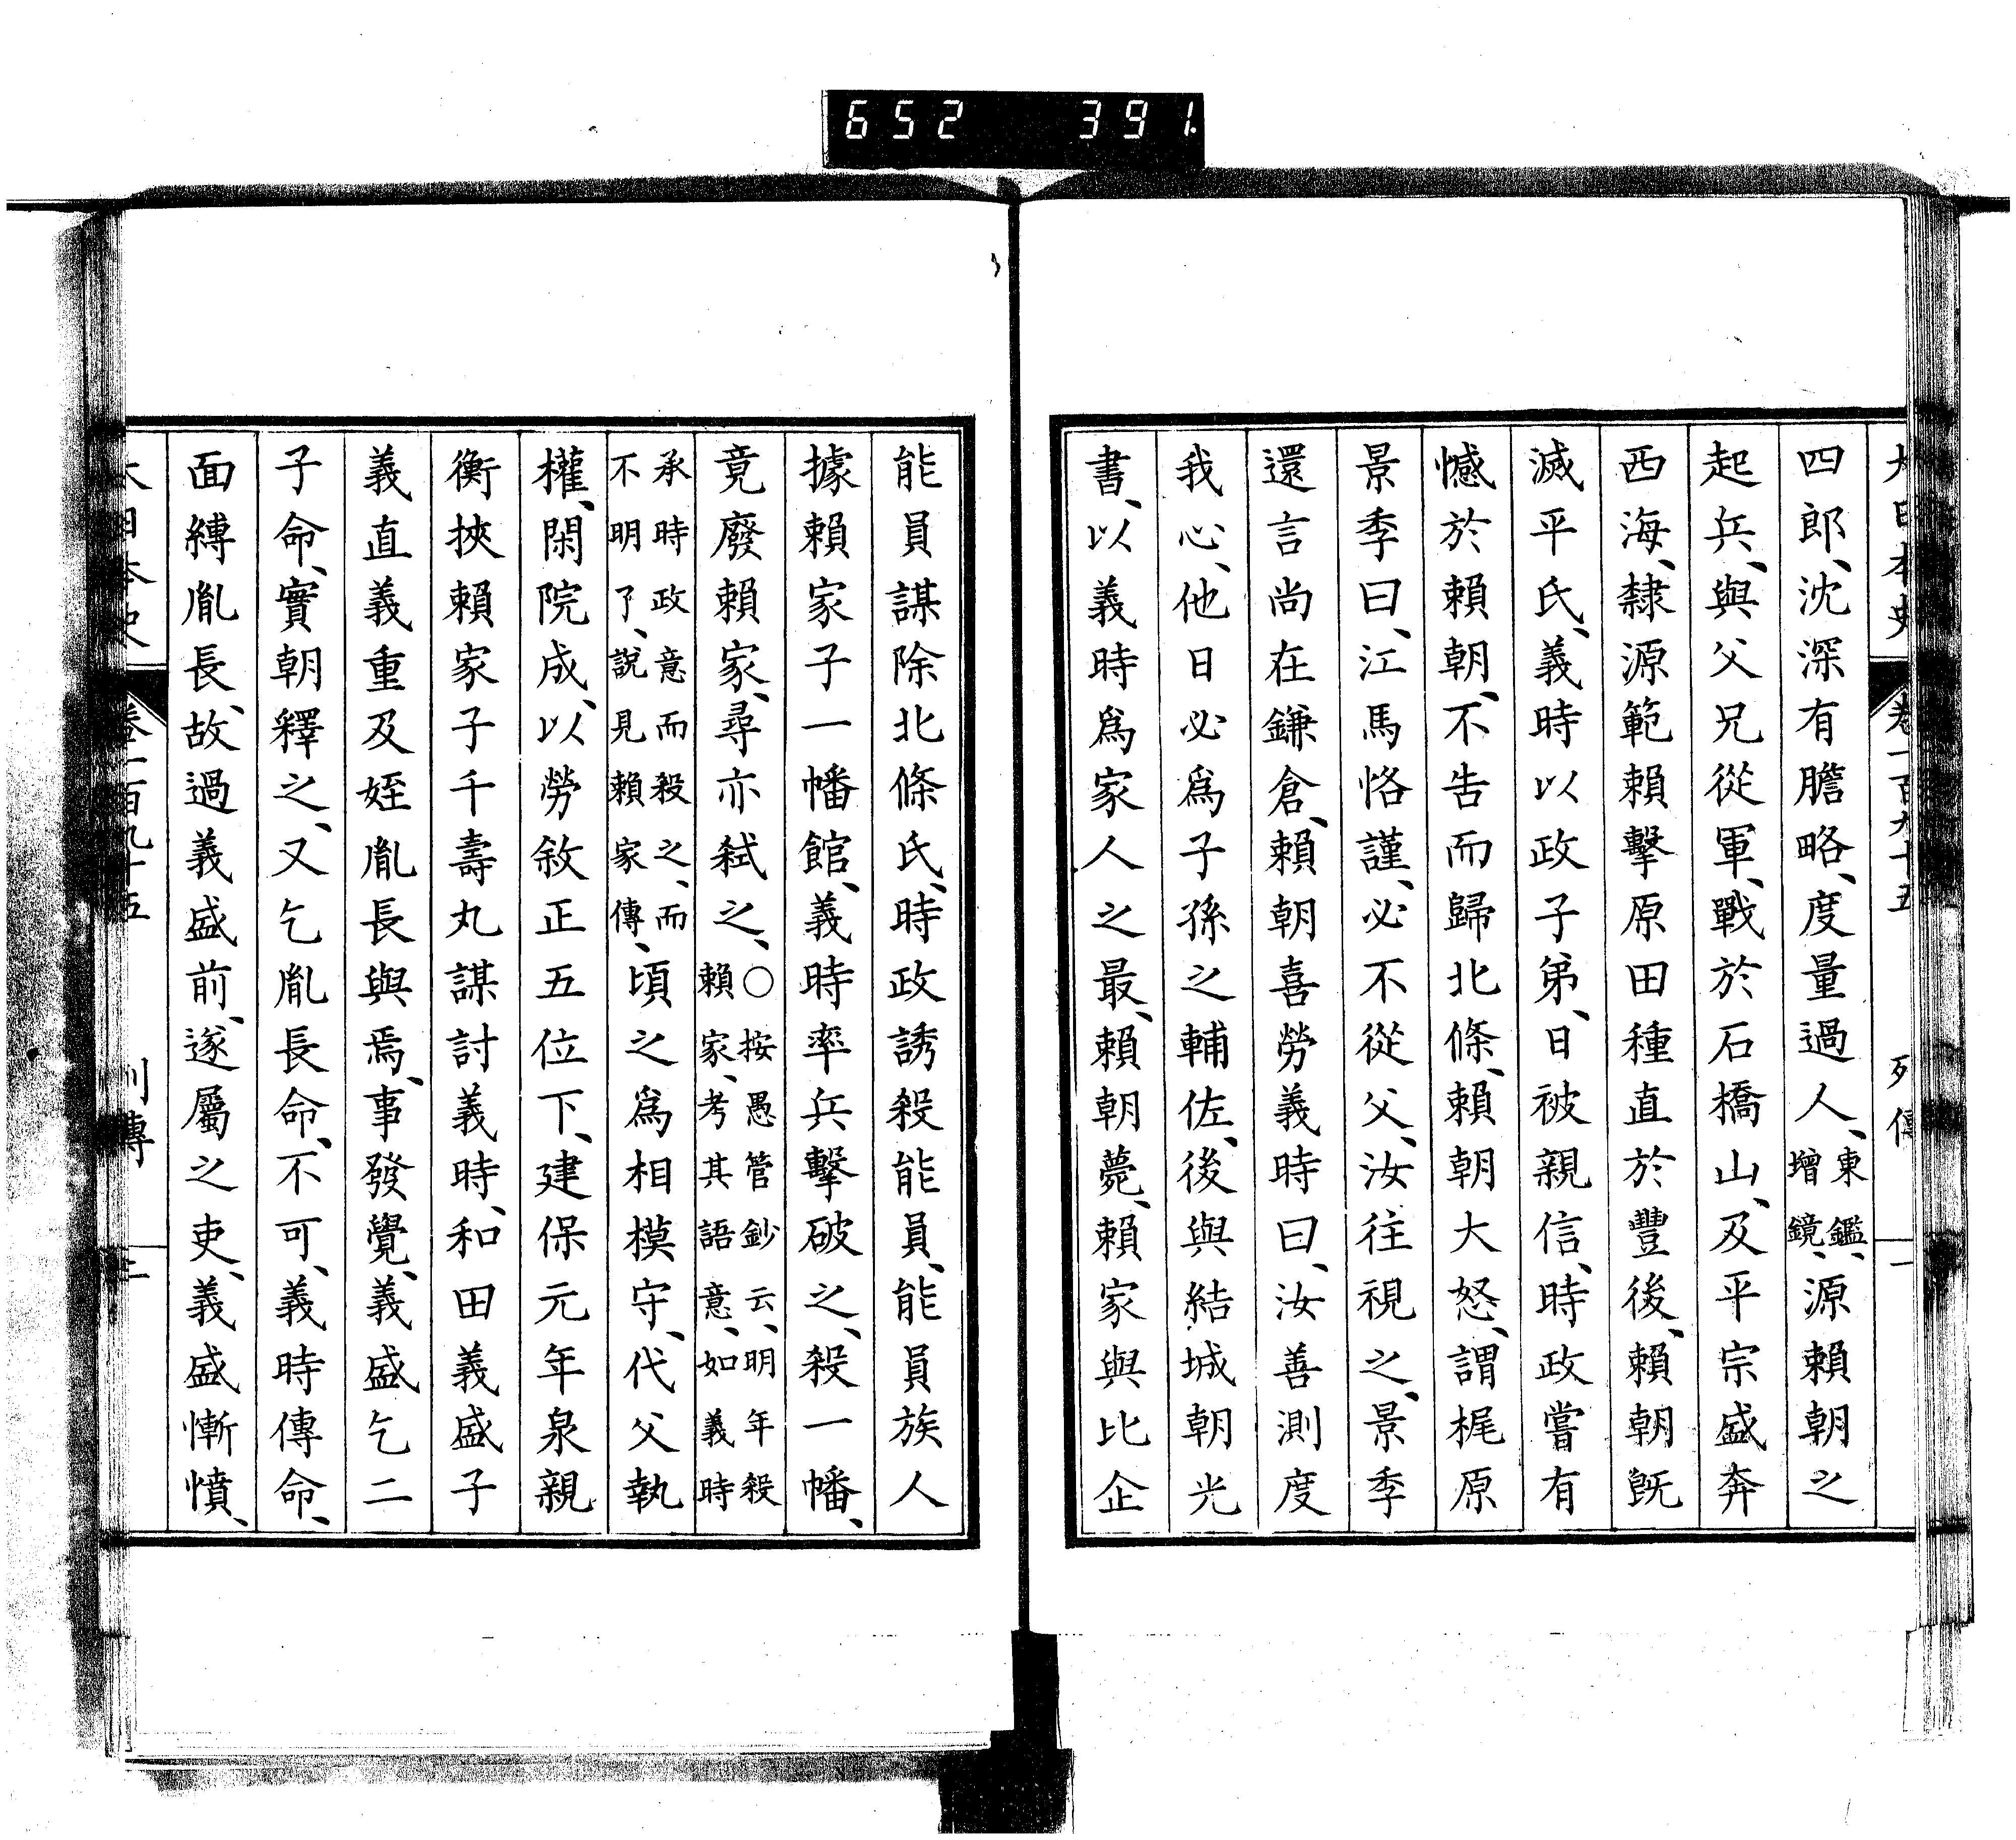 652 391.
大日本史 卷一百九十五 列傳 一
四郎、沈深有膽略、度量過人、東鑑、增鏡、源賴朝之
起兵、與父兄從軍、戰於石橋山、及平宗盛奔
西海、隸源範賴擊原田種直於豐後、賴朝既
滅平氏、義時以政子弟、日被親信、時政嘗有
憾於賴朝、不告而歸北條、賴朝大怒、謂梶原
景季曰、江馬恪謹、必不從父、汝往視之、景季
還言尚在鎌倉、賴朝喜勞義時曰、汝善測度
我心、他日必爲子孫之輔佐、後與結城朝光
書、以義時爲家人之最、賴朝薨、賴家與比企
能員謀除北條氏、時政誘殺能員、能員族人
據賴家子一幡館、義時率兵擊破之、殺一幡、
竟廢賴家、尋亦弒之、○按愚管鈔云、明年殺賴家、考其語意、如義時
承時政意而殺之、而不明了、說見賴家傳、頃之爲相模守、代父執
權、閑院成、以勞敘正五位下、建保元年泉親
衡挾賴家子千壽丸謀討義時、和田義盛子
義直義重及姪胤長與焉、事發覺、義盛乞二
子命、實朝釋之、又乞胤長命、不可、義時傳命、
面縛胤長、故過義盛前、遂屬之吏、義盛慚憤、
大日本史 卷一百九十五 列傳 二